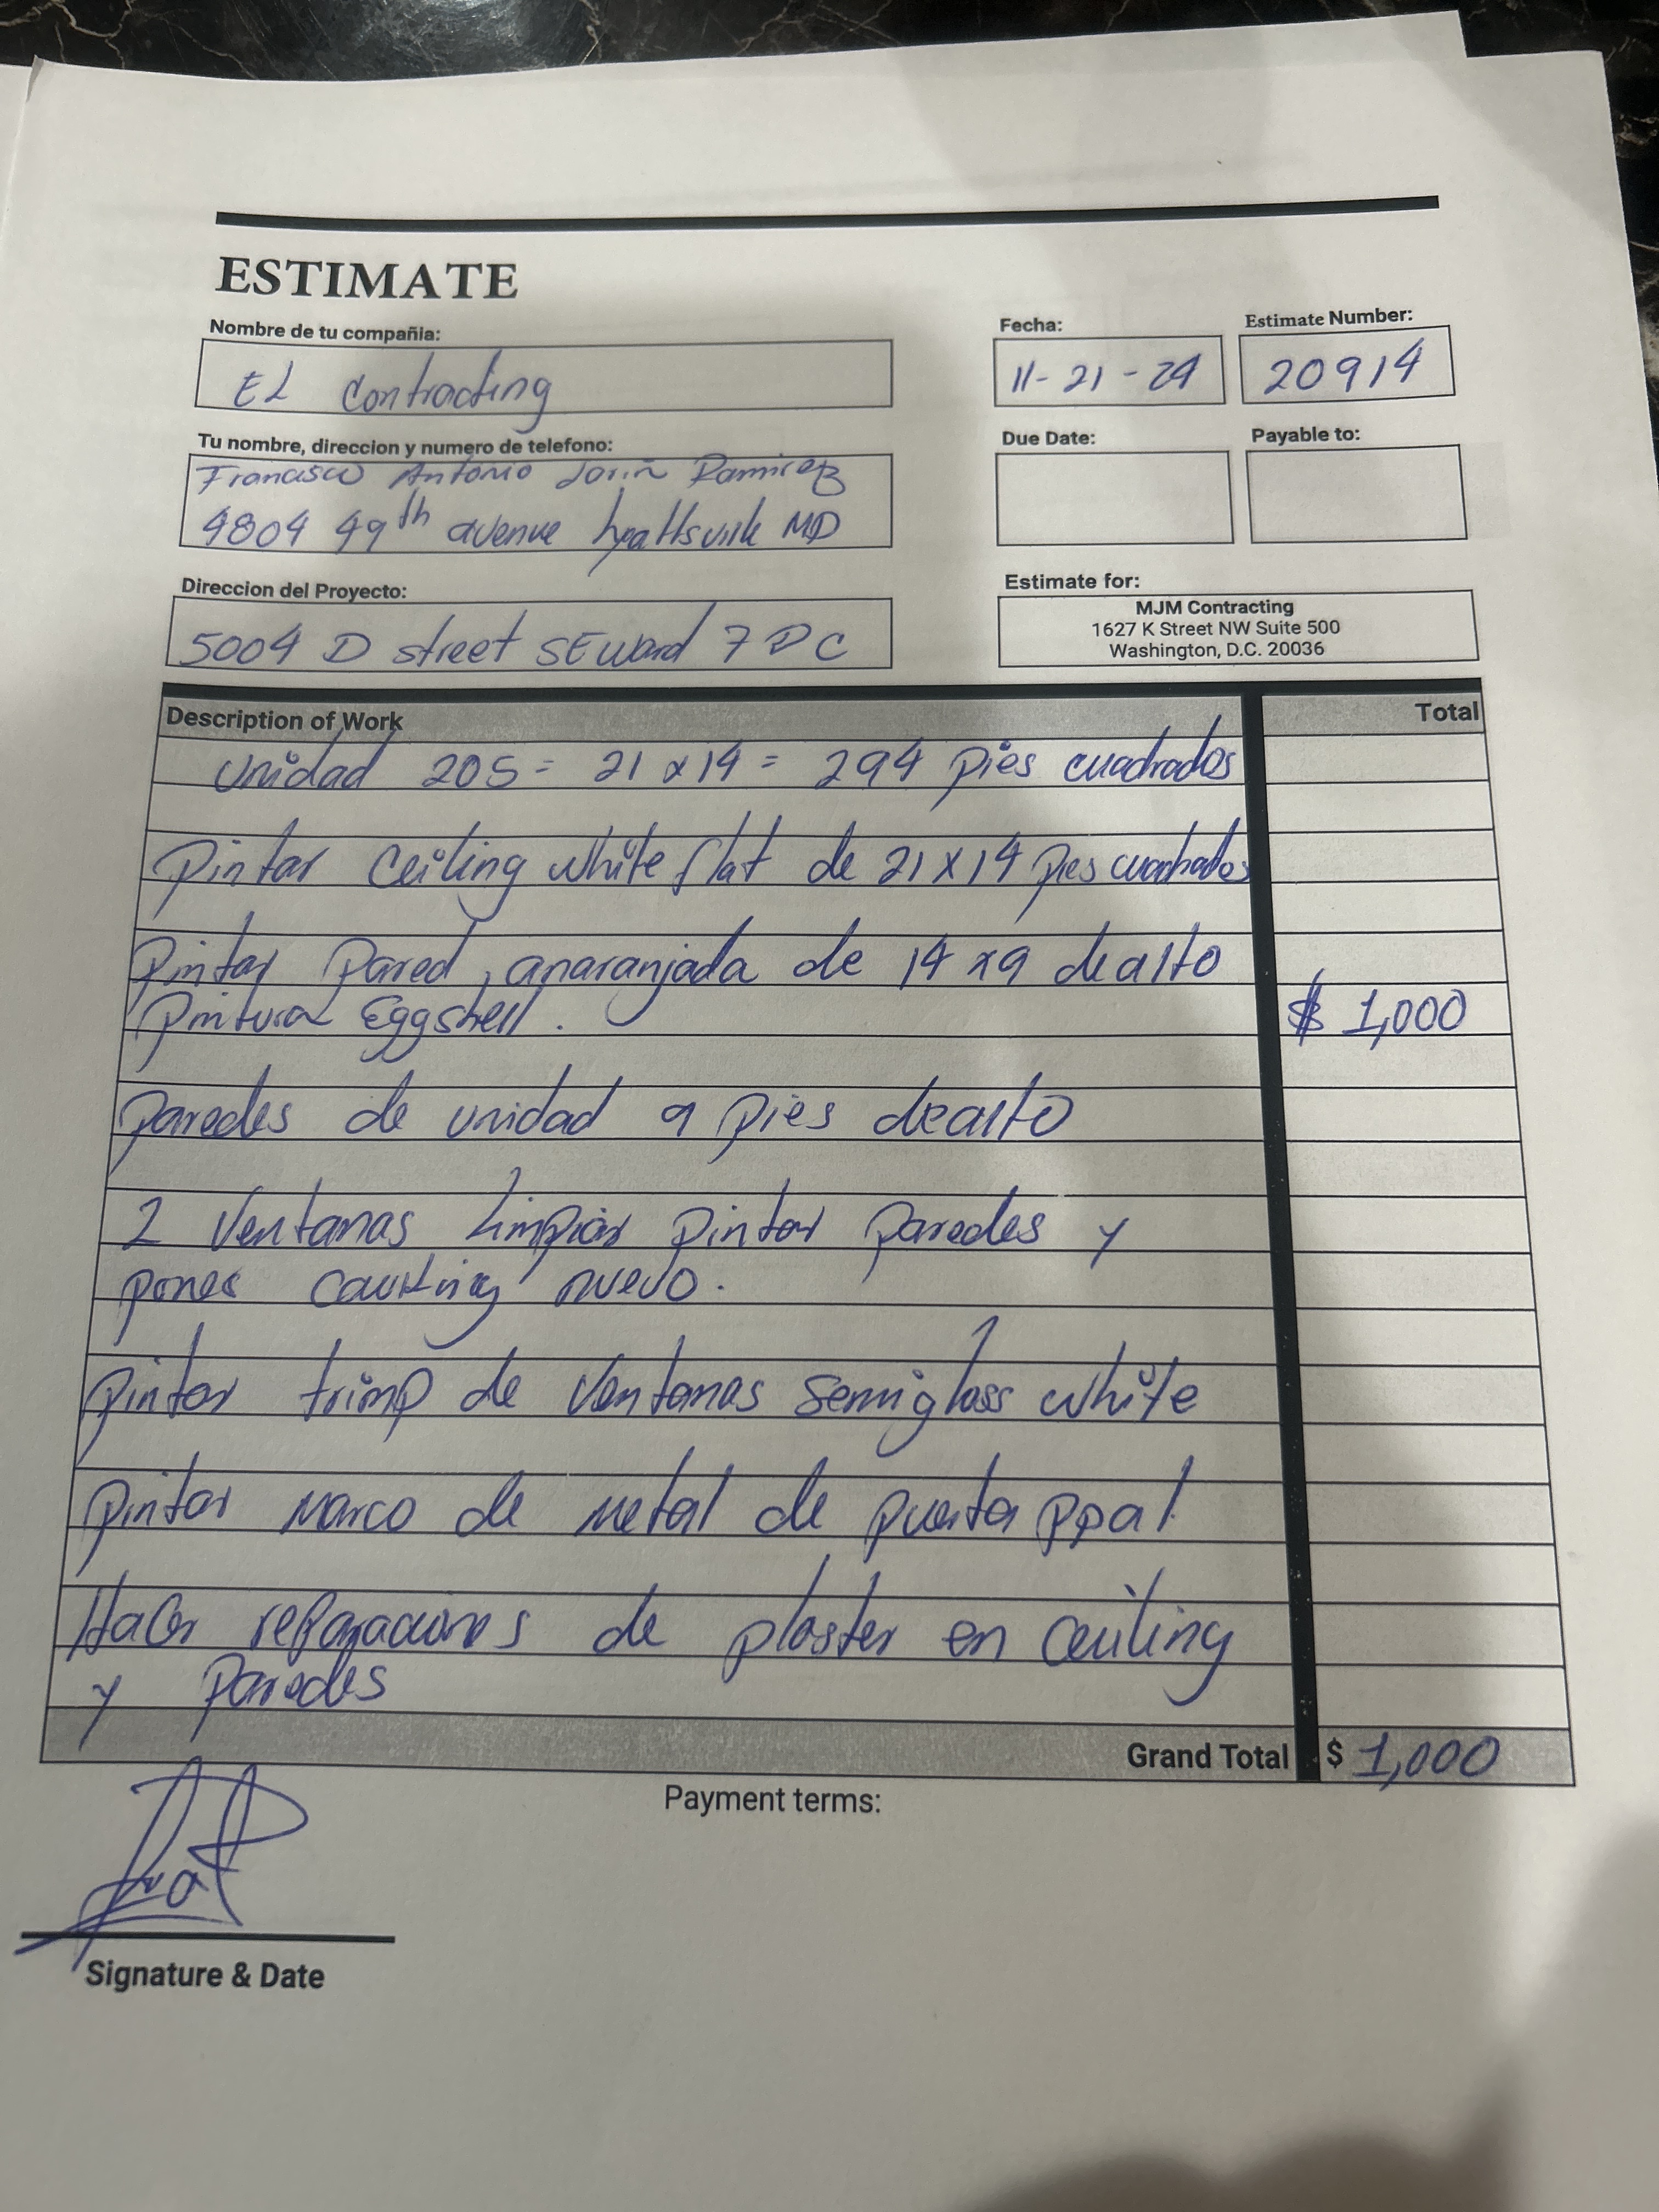 ESTIMATE
Nombre de tu compañia:
EL Contracting
Fecha:
11-21-24
Estimate Number:
20914
Tu nombre, direccion y numero de telefono:
Francisco Antonio Ramirez
4804 49th avenue hyattsville MD
Due Date:
Payable to:
Direccion del Proyecto:
5004 D street SE Ward 7 DC
Estimate for:
MJM Contracting
1627 K Street NW Suite 500
Washington, D.C. 20036
Description of Work
Total
Unidad 205 = 21 x 14 = 294 pies cuadrados
Pintar Ceiling white flat de 21 x 14 pies cuadrados
Pintar pared, anaranjada de 14 x 9 de alto
Pintura Eggshell.
$ 1,000
paredes de unidad 9 pies de alto
2 Ventanas Limpiar pintar paredes y
poner caulking nuevo.
Pintar trimp de Ventanas Semigloss white
Pintar Marco de Metal de puerta ppal.
Hacer reparaciones de plaster en ceiling
y paredes
Grand Total
$ 1,000
Payment terms:
Signature & Date